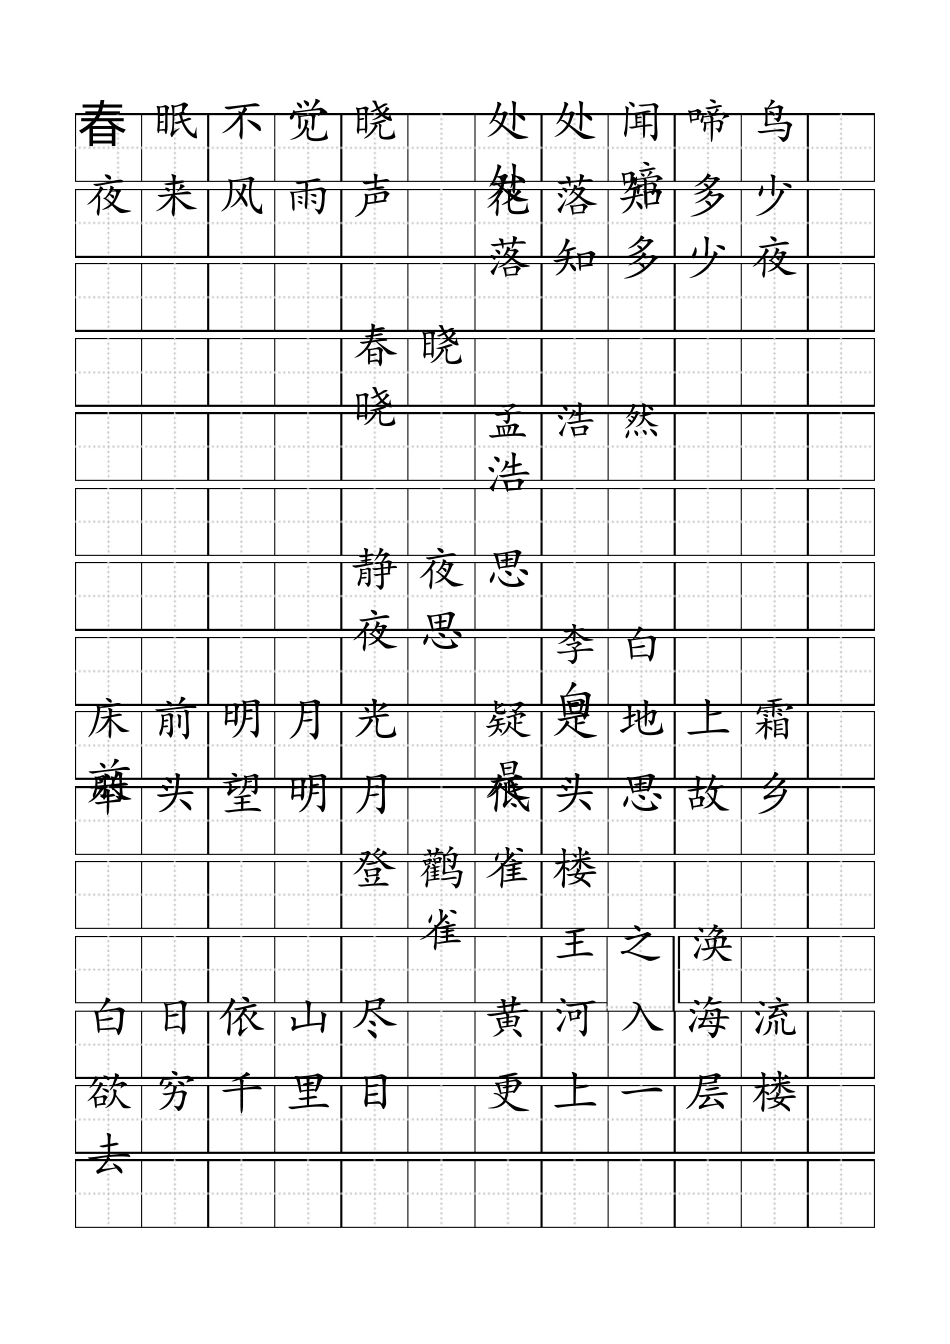 春眠不觉晓 处处闻啼鸟
处 啼
夜来风雨声 花落知多少
落知多少夜
春晓
晓
孟浩然
浩
静夜思
夜思
李白
白
床前明月光 疑是地上霜
前 是
举头望明月 低头思故乡
登鹳雀楼
雀
王之涣
白日依山尽 黄河入海流
欲穷千里目 更上一层楼
去